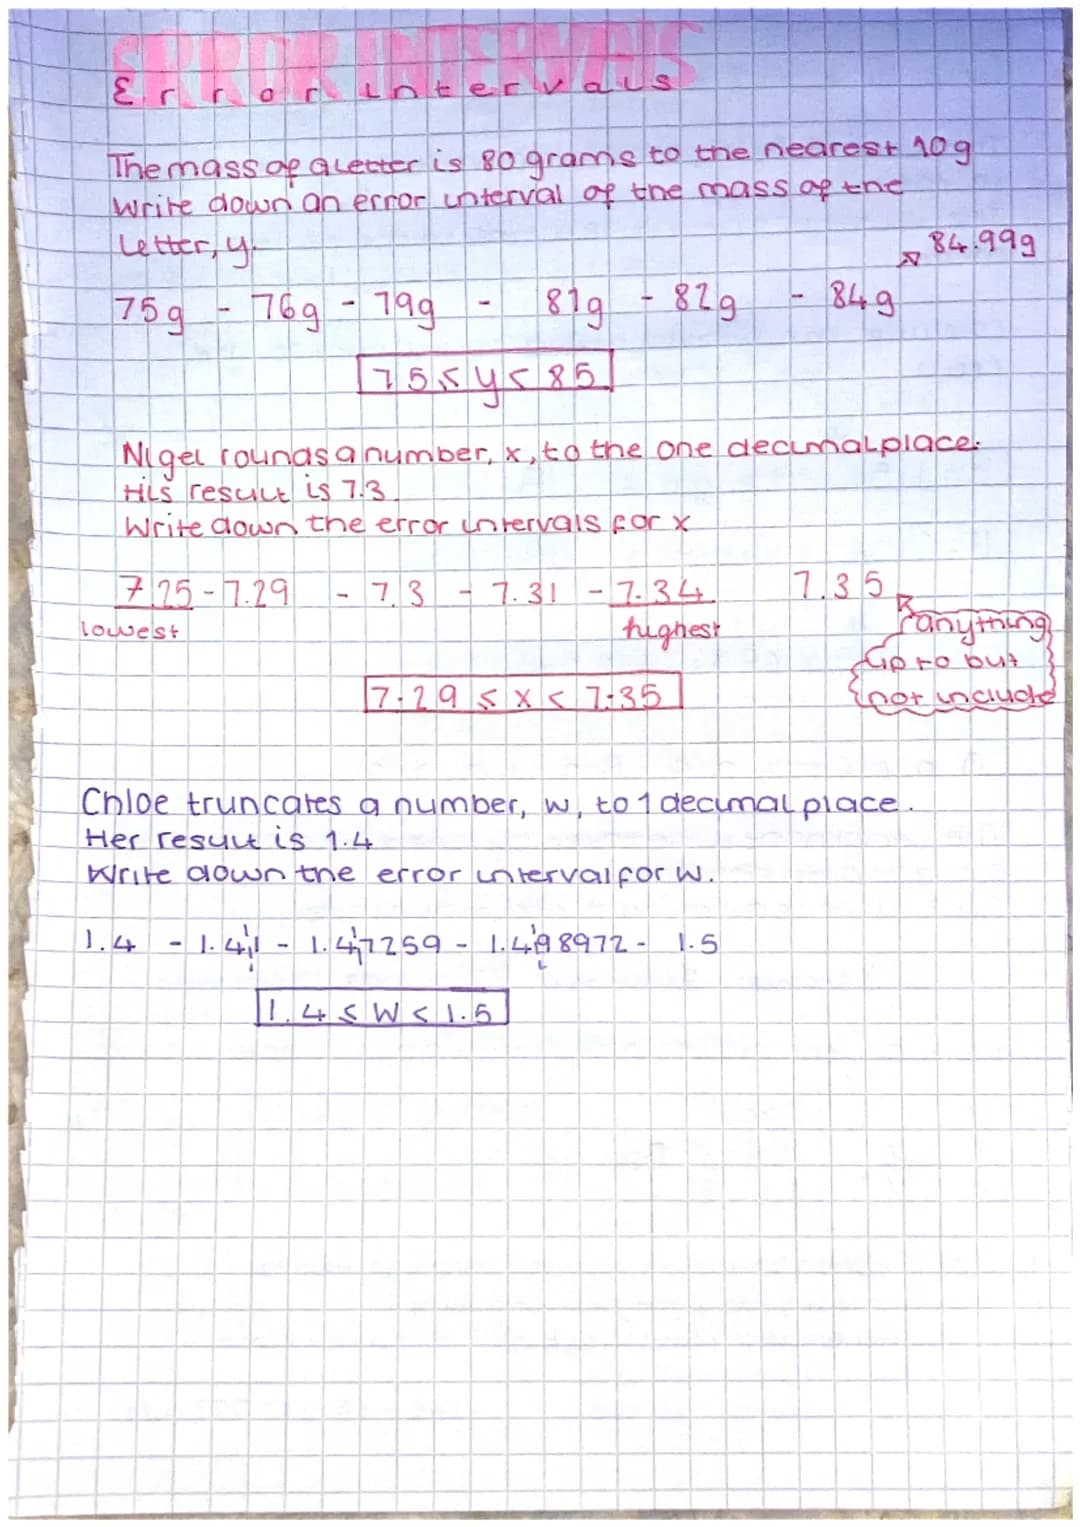 ERROR INTERVALS
Error intervals
The mass of a letter is 80 grams to the nearest 10g
Write down an error interval of the mass of the
letter, y.
84.99g
75g - 76g - 79g - 81g - 82g - 84g
75 ≤ y < 85
Nigel rounds a number, x, to the one decimal place.
His result is 7.3.
Write down the error intervals for x
7.25 - 7.29 - 7.3 - 7.31 - 7.34 7.35
lowest highest
anything
up to but
not include
7.29 ≤ x < 7.35
Chloe truncates a number, w, to 1 decimal place.
Her result is 1.4
Write down the error interval for w.
1.4 - 1.41 - 1.47259 - 1.498972 - 1.5
1.4 ≤ w < 1.5